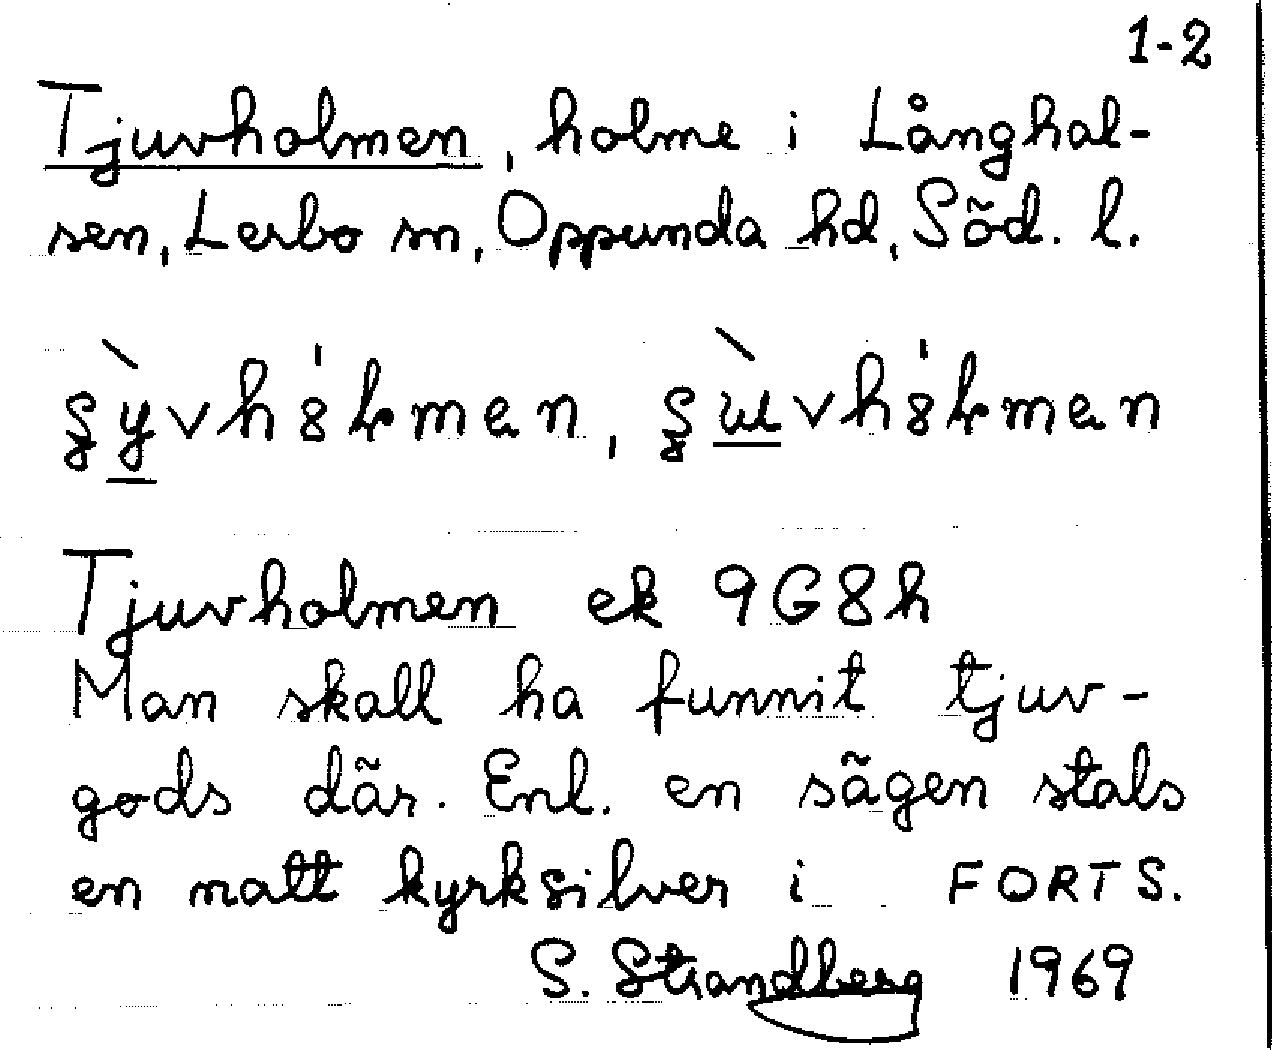 1-2
Tjuvholmen, holme i Långhal-
sen, Lerbo sn, Oppunda hd, Söd. l.
Tjuvholmen ek 9G8h
Man skall ha funnit tjuv-
gods där. Enl. en sägen stals
en natt kyrksilver i FORTS.
S. Strandberg 1969